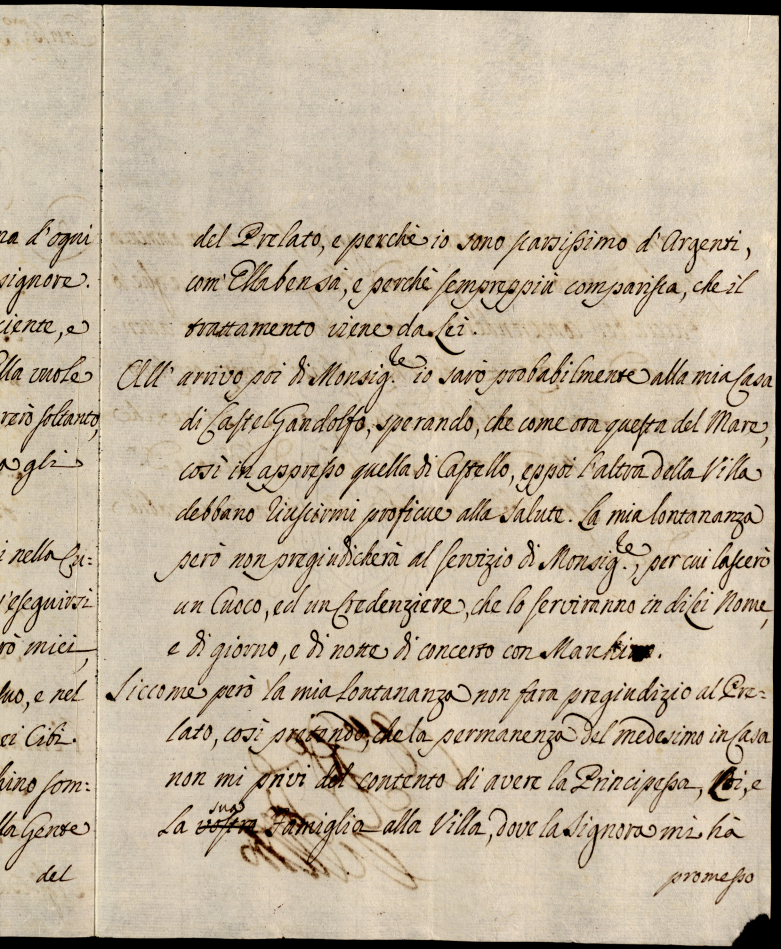 na d'ogni
signore.
ciente, e
Ella vuole
rerò soltanto,
a gli
i nella Cu=
'eseguirsi
rò miei,
suo, e nel
ei Cibi.
hino som=
lla Gente
del
del Prelato, e perchè io sono scarsissimo d'Argenti,
com' Ella ben sà, e perchè sempreppiù comparisca, che il
trattamento viene da Lei.
All' arrivo poi di Monsig.re io sarò probabilmente alla mia Casa
di Castel Gandolfo, sperando, che come ora questa del Mare,
così in appresso quella di Castello, eppoi l'altra della Villa
debbano riuscirmi proficue alla salute. La mia lontananza
però non pregiudicherà al servizio di Monsig.re, per cui lascerò
un Cuoco, ed un Credenziere, che lo serviranno in di Lei Nome,
e di giorno, e di notte di concerto con
Siccome però la mia lontananza non fara pregiudizio al Pre=
lato, così pretendo, che la permanenza del medesimo in Casa
non mi privi del contento di avere la Principessa, Lei, e
la vostra sua Famiglia alla Villa, dove la Signora mi hà
promesso